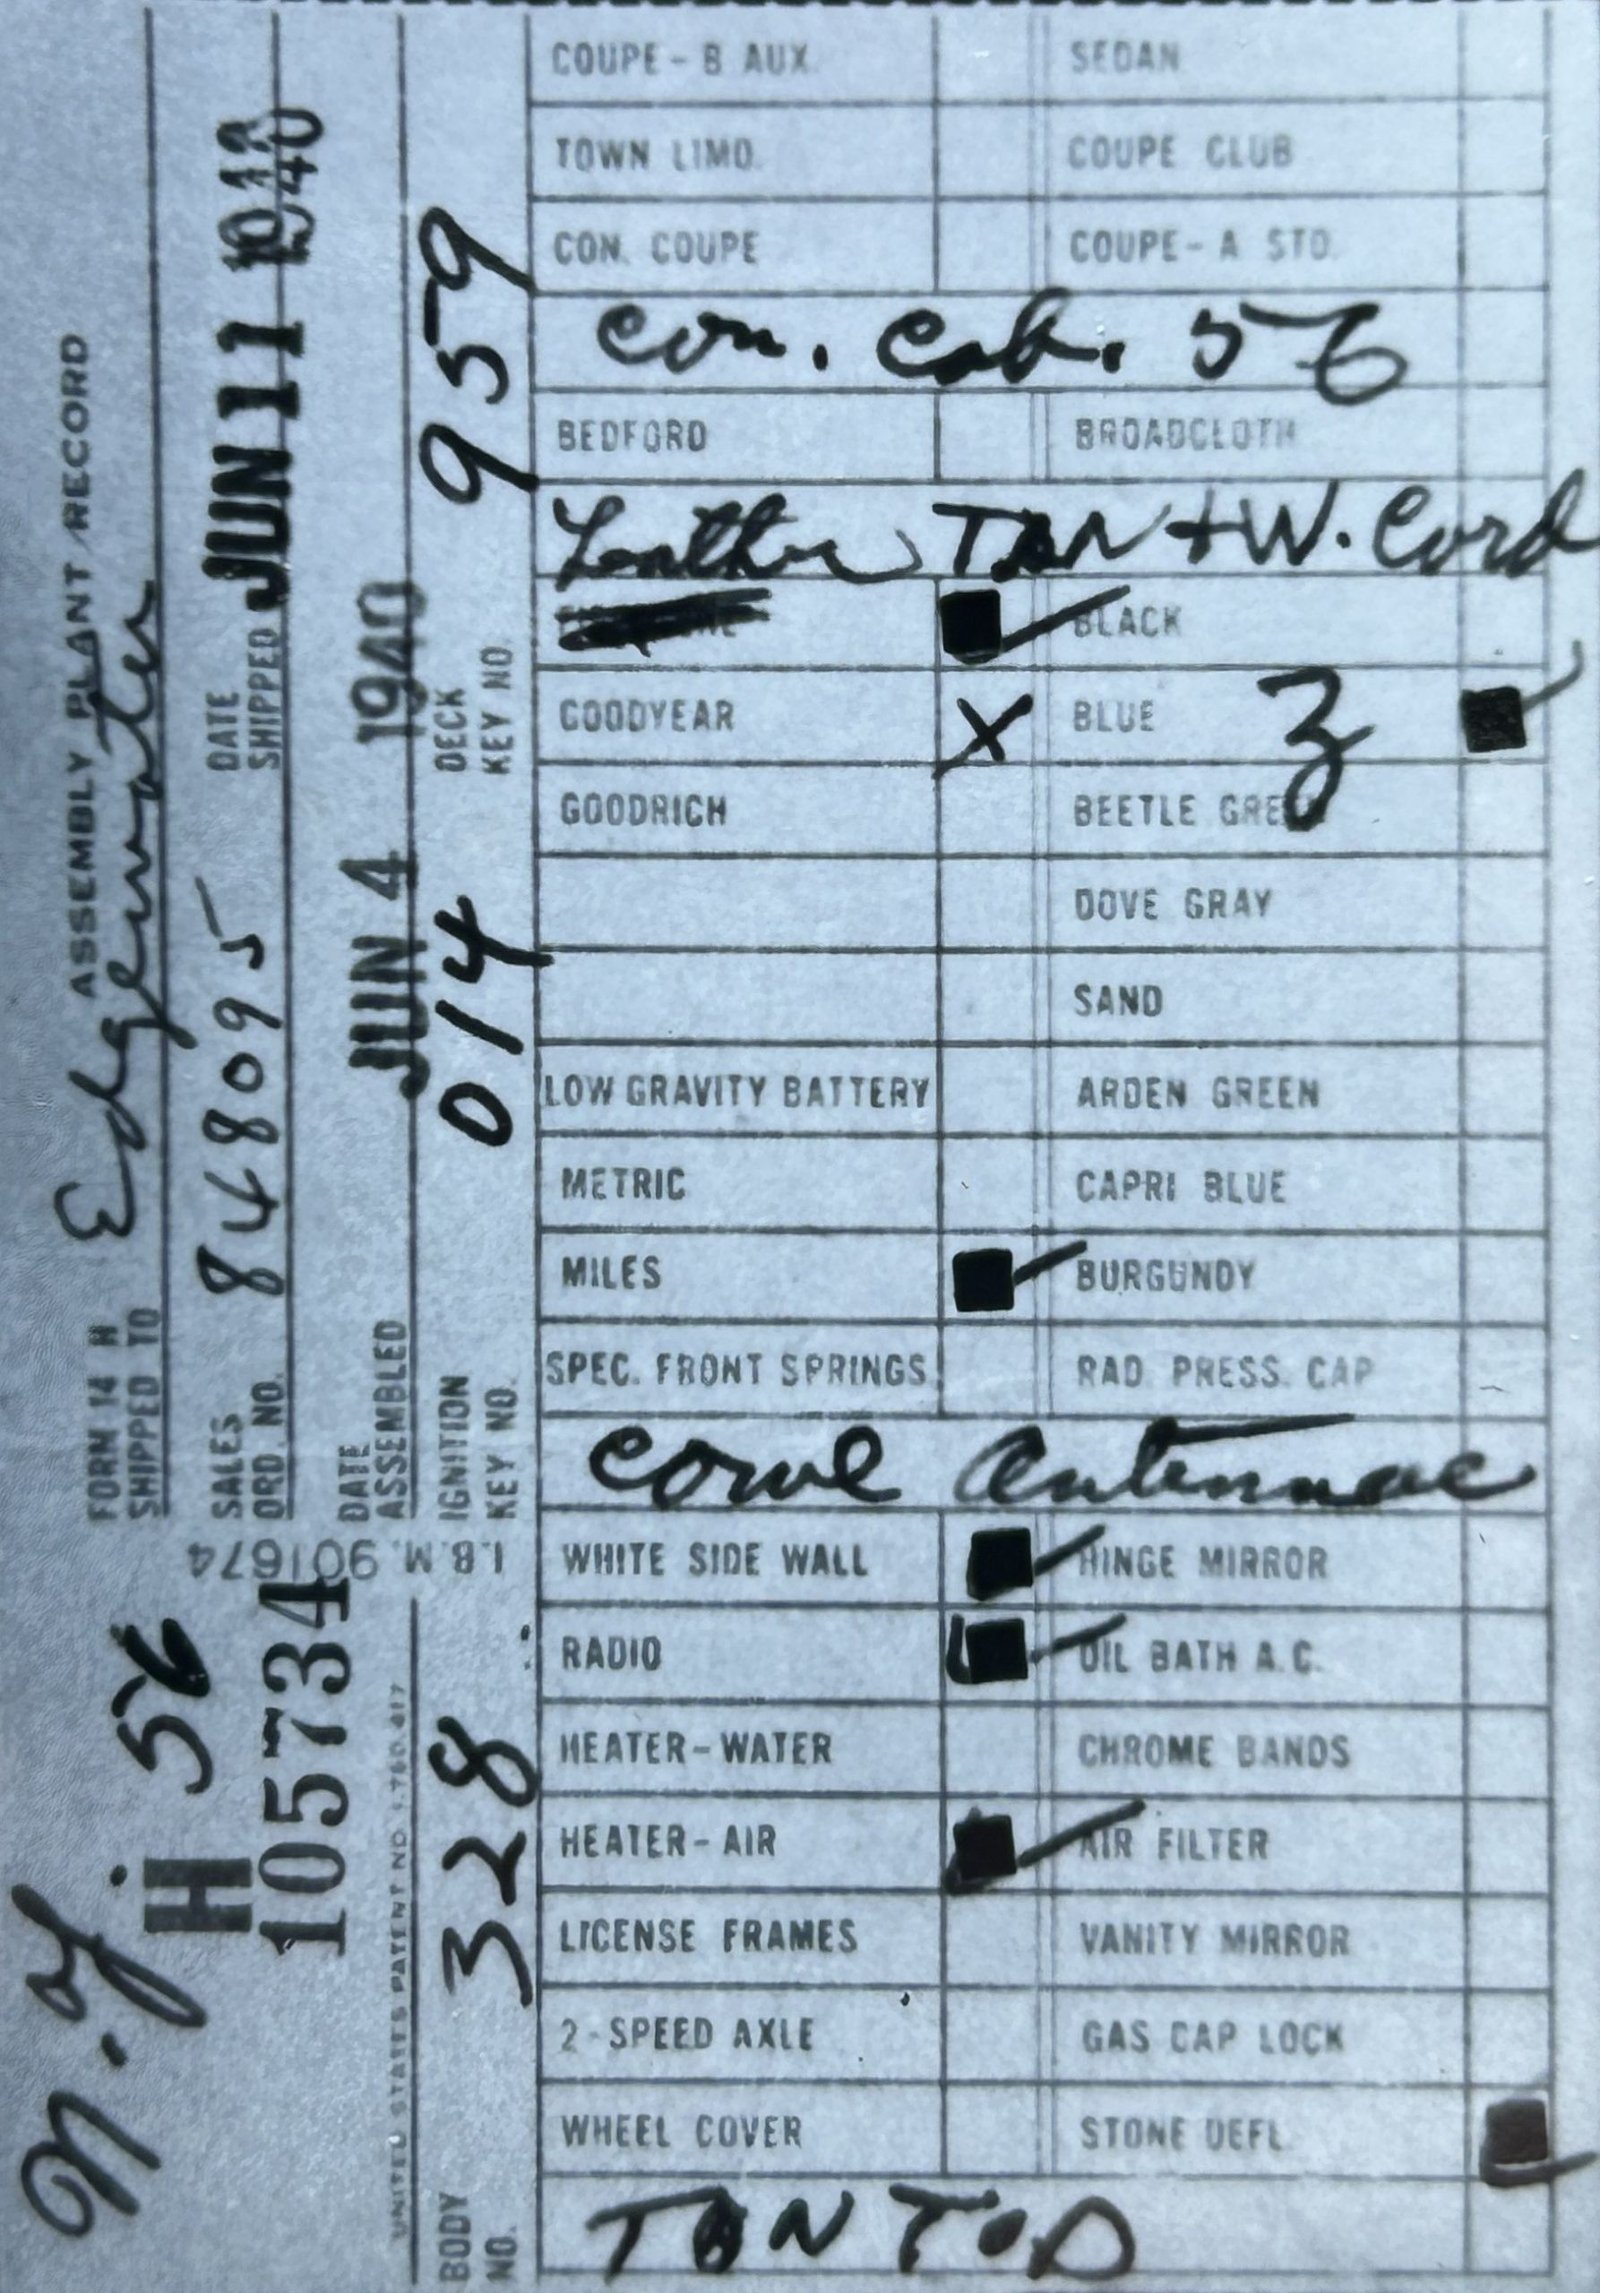 N.Y.
H 56
105734
I.B.M. 901674
UNITED STATES PATENT NO. 1,780,617
FORM 14 H ASSEMBLY PLANT RECORD
SHIPPED TO Edgewater
SALES ORD. NO. 848095
DATE SHIPPED JUN 11 1940
DATE ASSEMBLED JUN 4 1940
BODY NO. 328
IGNITION KEY NO. 014
DECK KEY NO. 959
COUPE - B AUX. SEDAN
TOWN LIMO. COUPE CLUB
CON. COUPE COUPE - A STD.
Con. Cab. 56
BEDFORD BROADCLOTH
Leather TAN + W. Cord
BLACK
GOODYEAR X BLUE 3
GOODRICH BEETLE GREEN
DOVE GRAY
SAND
LOW GRAVITY BATTERY ARDEN GREEN
METRIC CAPRI BLUE
MILES BURGUNDY
SPEC. FRONT SPRINGS RAD. PRESS. CAP
Cowl Antennae
WHITE SIDE WALL HINGE MIRROR
RADIO OIL BATH A.C.
HEATER - WATER CHROME BANDS
HEATER - AIR AIR FILTER
LICENSE FRAMES VANITY MIRROR
2 - SPEED AXLE GAS CAP LOCK
WHEEL COVER STONE DEFL.
TAN TOP